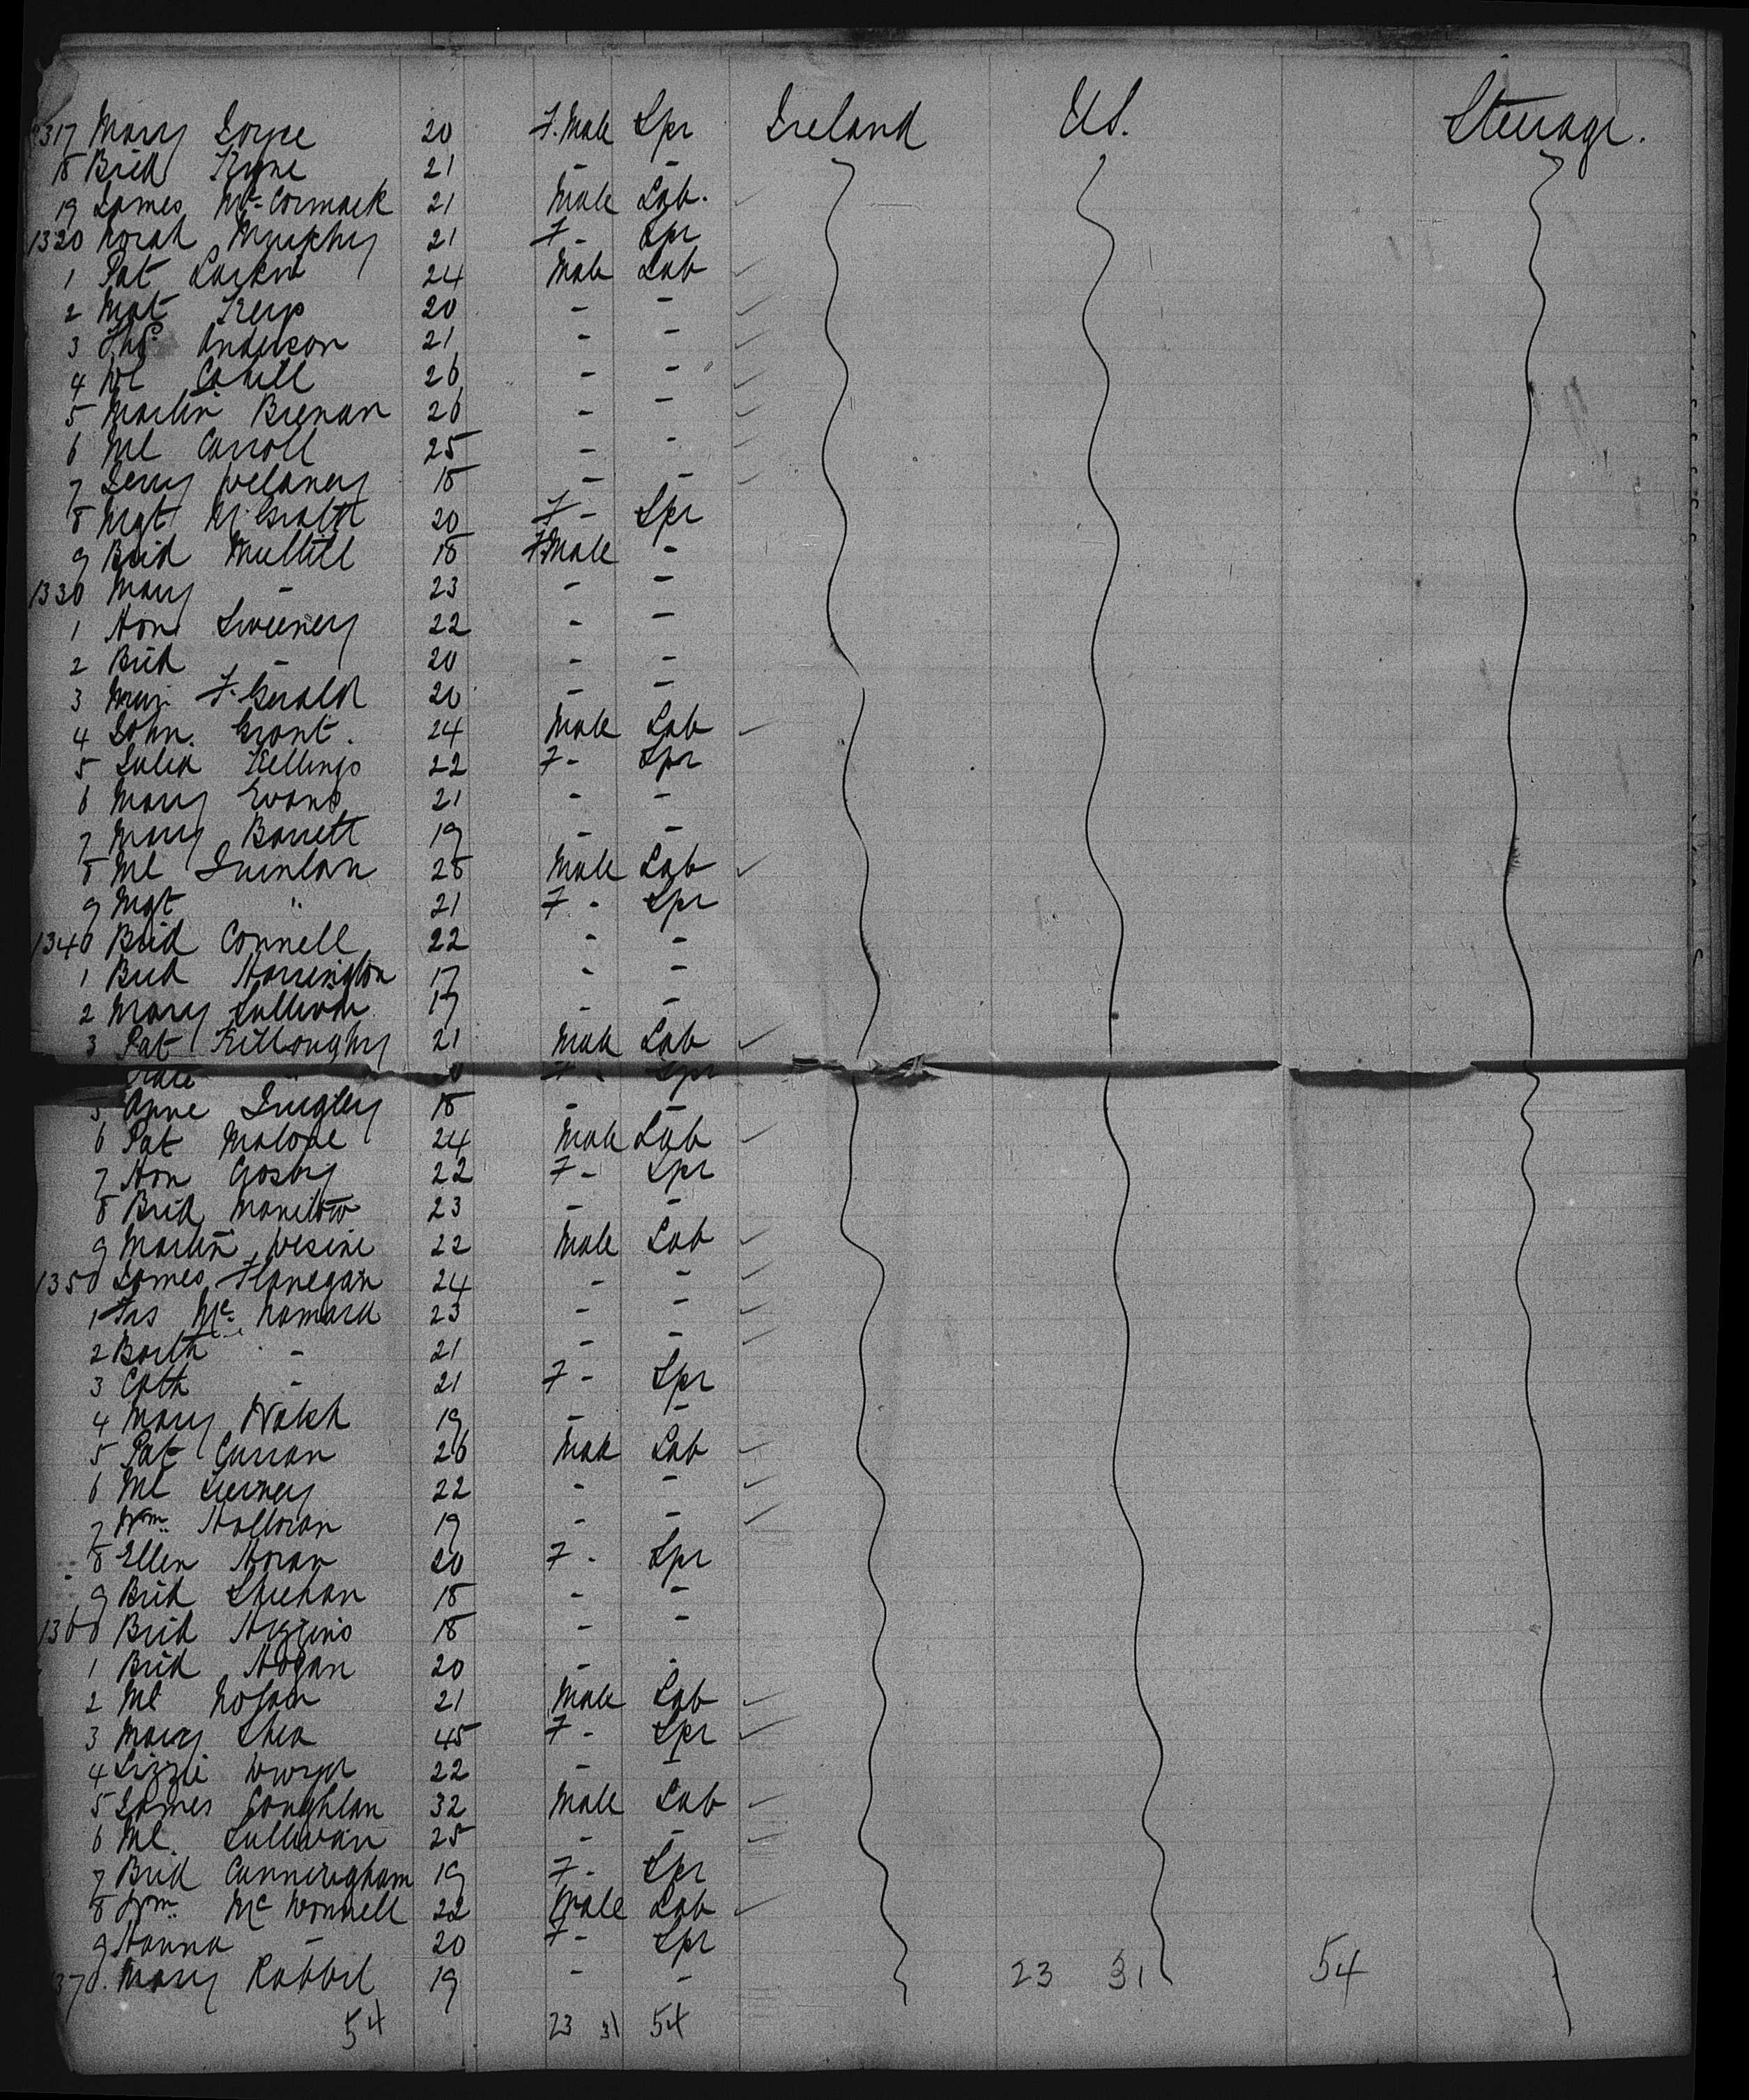 1317 Mary Joyce 20 F. Male Spr Ireland U.S. Steerage.
18 Brid Kyne 21 - -
19 James Mc Cormack 21 Male Lab.
1320 Norah Murphy 21 F - Spr
1 Pat Larkin 24 Male Lab
2 Mat Keys 20 - -
3 Ths Anderson 21 - -
4 Ml Cahill 26 - -
5 Martin Brenan 26 - -
6 Ml Carroll 25 - -
7 Jerry Delaney 18 - -
8 Mgt McGrath 20 F - Spr
9 Brid Mullill 18 F.Male -
1330 Mary - 23 - -
1 Hon Sweeney 22 - -
2 Brid - 20 - -
3 F. Gerald 20 - -
4 John. Grant. 24 Male Lab
5 Julia Kellings 22 F - Spr
6 Mary Evans 21 - -
7 Mary Barrett 19 - -
8 Ml Quinlan 28 Male Lab
9 Mgt " 21 F - Spr
1340 Brid Connell 22 - -
1 Brid Harrington 17 - -
2 Mary Sullivan 19 - -
3 Pat Killoughy 21 Male Lab
F - Spr
5 Anne Quigley 18 - -
6 Pat Malone 24 Male Lab
7 Hon Crosby 22 F - Spr
8 Brid 23 - -
9 Martin Devine 22 Male Lab
1350 James Flanegan 24 - -
1 Frs Mc Namara 23 - -
2 Barth - 21 - -
3 Cath - 21 F - Spr
4 Mary Walsh 19 - -
5 Pat Curran 26 Male Lab
6 Ml Tierney 22 - -
7 Wm Halloran 19 - -
8 Ellen Horan 20 F - Spr
9 Brid Sheehan 18 - -
1360 Brid Higgins 18 - -
1 Brid Hogan 20 - -
2 Ml Nolan 21 Male Lab
3 Mary Shea 45 F - Spr
4 Lizzie Dwyer 22 - -
5 James Coughlan 32 Male Lab
6 Ml. Sullivan 25 - -
7 Brid Cunningham 19 F - Spr
8 Wm. Mc Donnell 22 Male Lab
9 Hanna - 20 F - Spr
1370. Mary Rabbit 19 - - 23 31 54
54 23 31 54